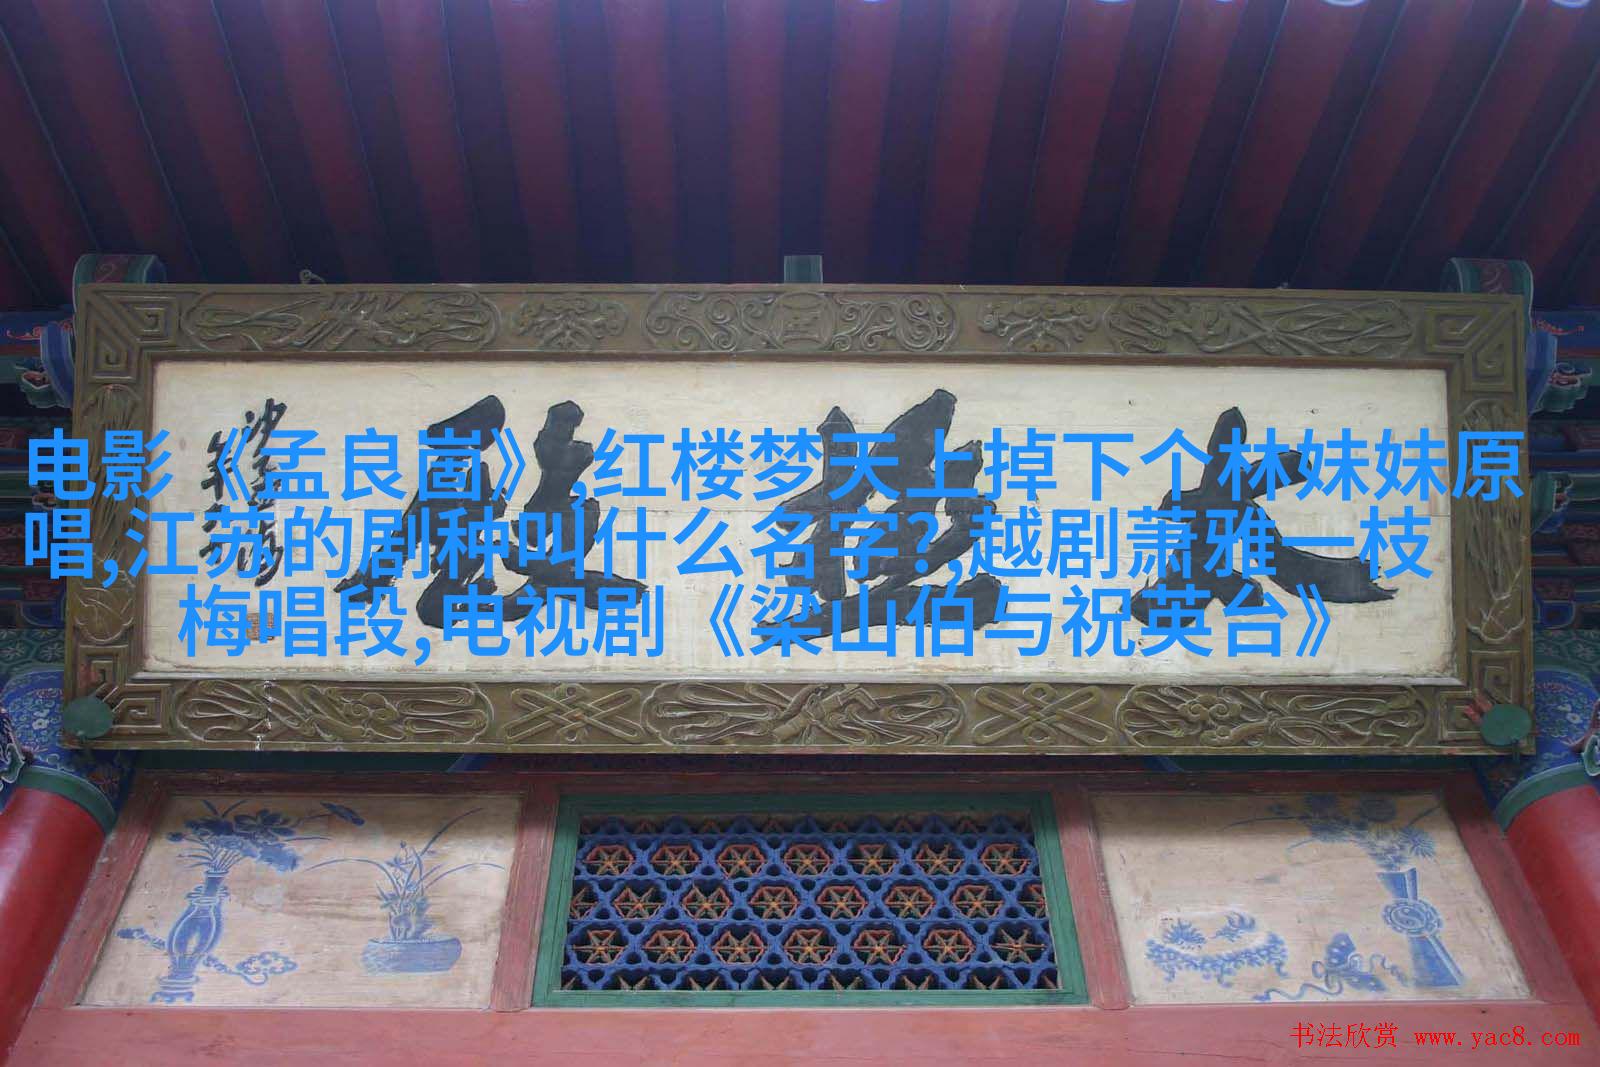 电影《孟良崮》,红楼梦天上掉下个林妹妹原
唱,江苏的剧种叫什么名字?,越剧萧雅一枝
梅唱段,电视剧《梁山伯与祝英台》
太极殿
书法欣赏 www.yac8.com